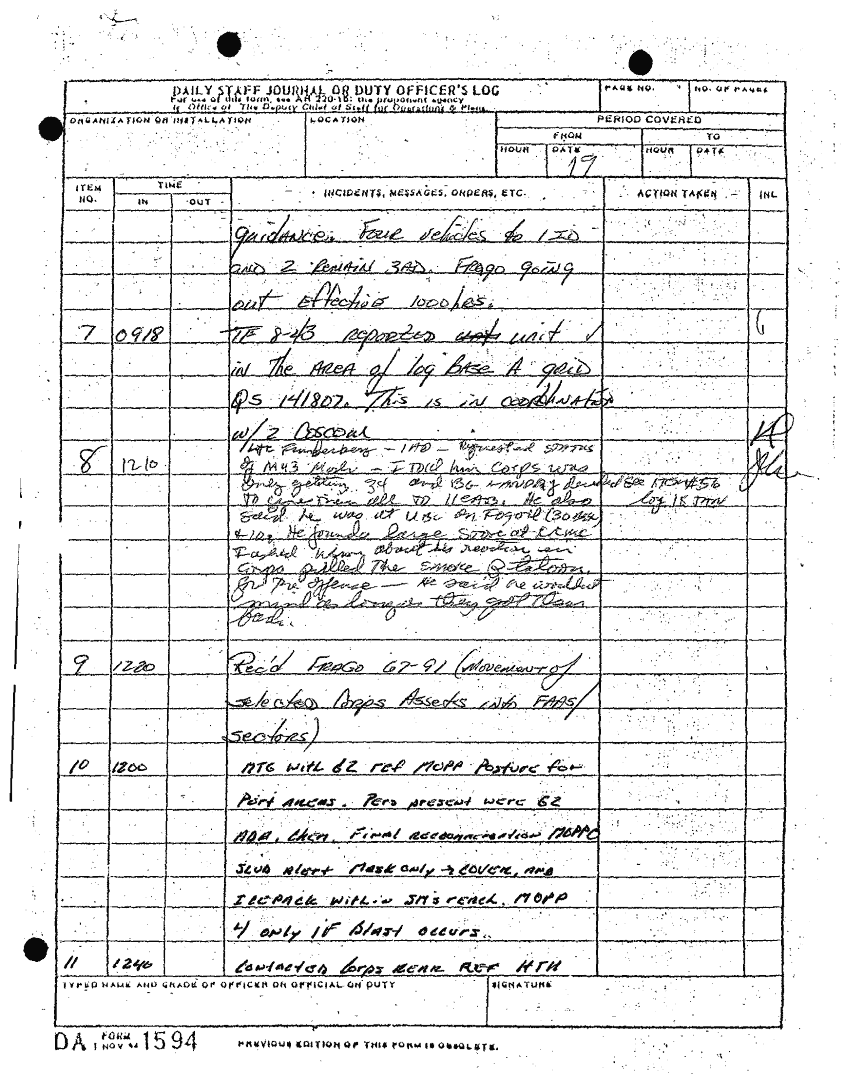 DAILY STAFF JOURNAL OR DUTY OFFICER'S LOG
For use of this form, see AR 220-15; the proponent agency
is Office of The Deputy Chief of Staff for Operations & Plans.
PAGE NO. NO. OF PAGES
ORGANIZATION OR INSTALLATION LOCATION PERIOD COVERED
FROM TO
HOUR DATE HOUR DATE
19
ITEM NO. TIME INCIDENTS, MESSAGES, ORDERS, ETC. ACTION TAKEN INL
IN OUT
guidance. Four vehicles to 1 ID
and 2 remain 3AD. Frago going
out effective 1000hrs.
7 0918 TF 8-43 reported unit
in the area of log Base A grid
QS 141807. This is in coordination
w/ 2 COSCOM
8 1210 LTC - 1AD - Requested status
of M43 - I told him Corps was
only getting 34 and BG decided See ITEM #56
to give them all to 11 EAB. He also log 18 JAN
said he was at on Fogoil (30
He found a large
I asked him about his reaction
Corps pulled the smoke Platoon
for the offense - He said he wouldnt
mind as long as they got them
back.
9 1220 Rec'd FRAGO 67-91 (movement of
selected Corps Assets into FAAs/
sectors)
10 1200 MTG with G2 ref MOPP Posture for
Port areas. Pers present were G2
ADA, Chem. Final recommendation MOPP0
SCUD alert Mask only → COVER, and
ICEPACK within SM's reach. MOPP
4 only if blast occurs.
11 1240 Contacted Corps Rear REF HTH
TYPED NAME AND GRADE OF OFFICER OR OFFICIAL ON DUTY SIGNATURE
DA FORM 1594
1 NOV
PREVIOUS EDITION OF THIS FORM IS OBSOLETE.